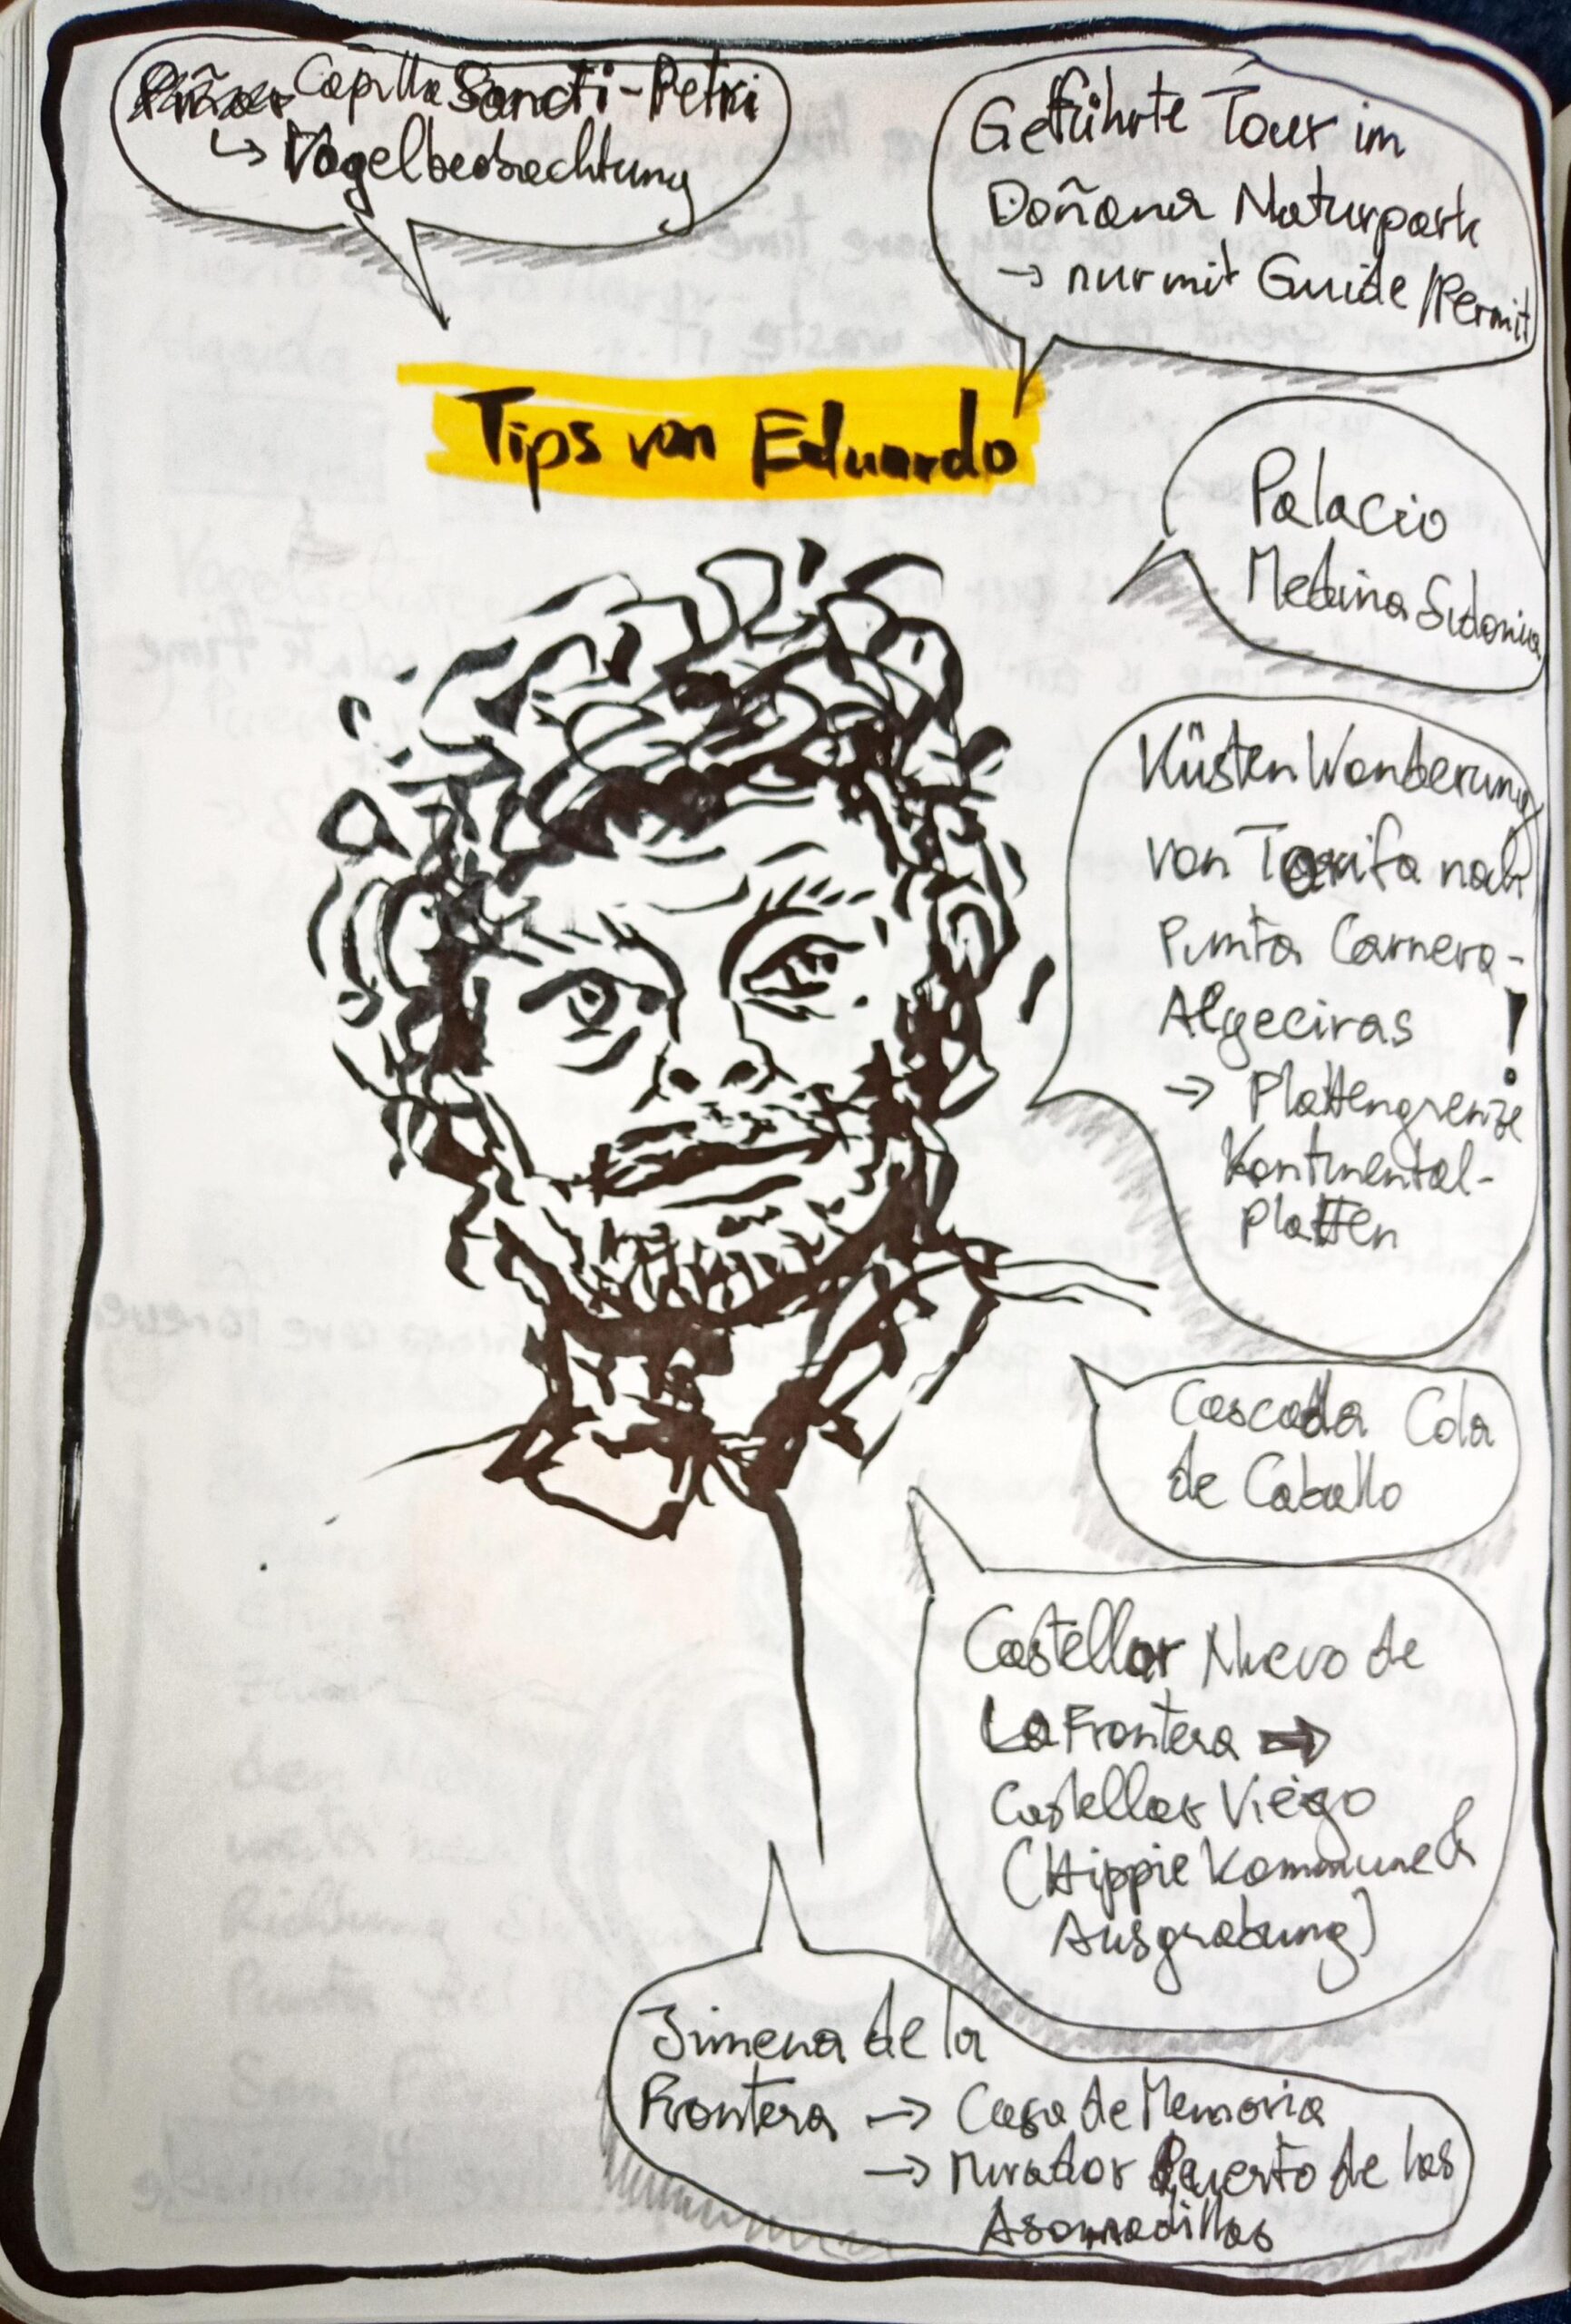 Capilla Sancti-Petri
↳ Vogelbeobachtung
Geführte Tour im
Doñana Naturpark
→ nur mit Guide / Permit
Tips von Eduardo
Palacio
Medina Sidonia
Küsten Wanderung
von Tarifa nach
Punta Carnero-
Algeciras !
→ Plattengrenze
Kontinental-
platten
Cascada Cola
de Caballo
Castellar Nuevo de
La Frontera ⇒
Castellar Viejo
(Hippie Kommune &
Ausgrabung)
Jimena de la
Frontera → Casa de Memoria
→ Mirador Puerto de las
Asomadillas